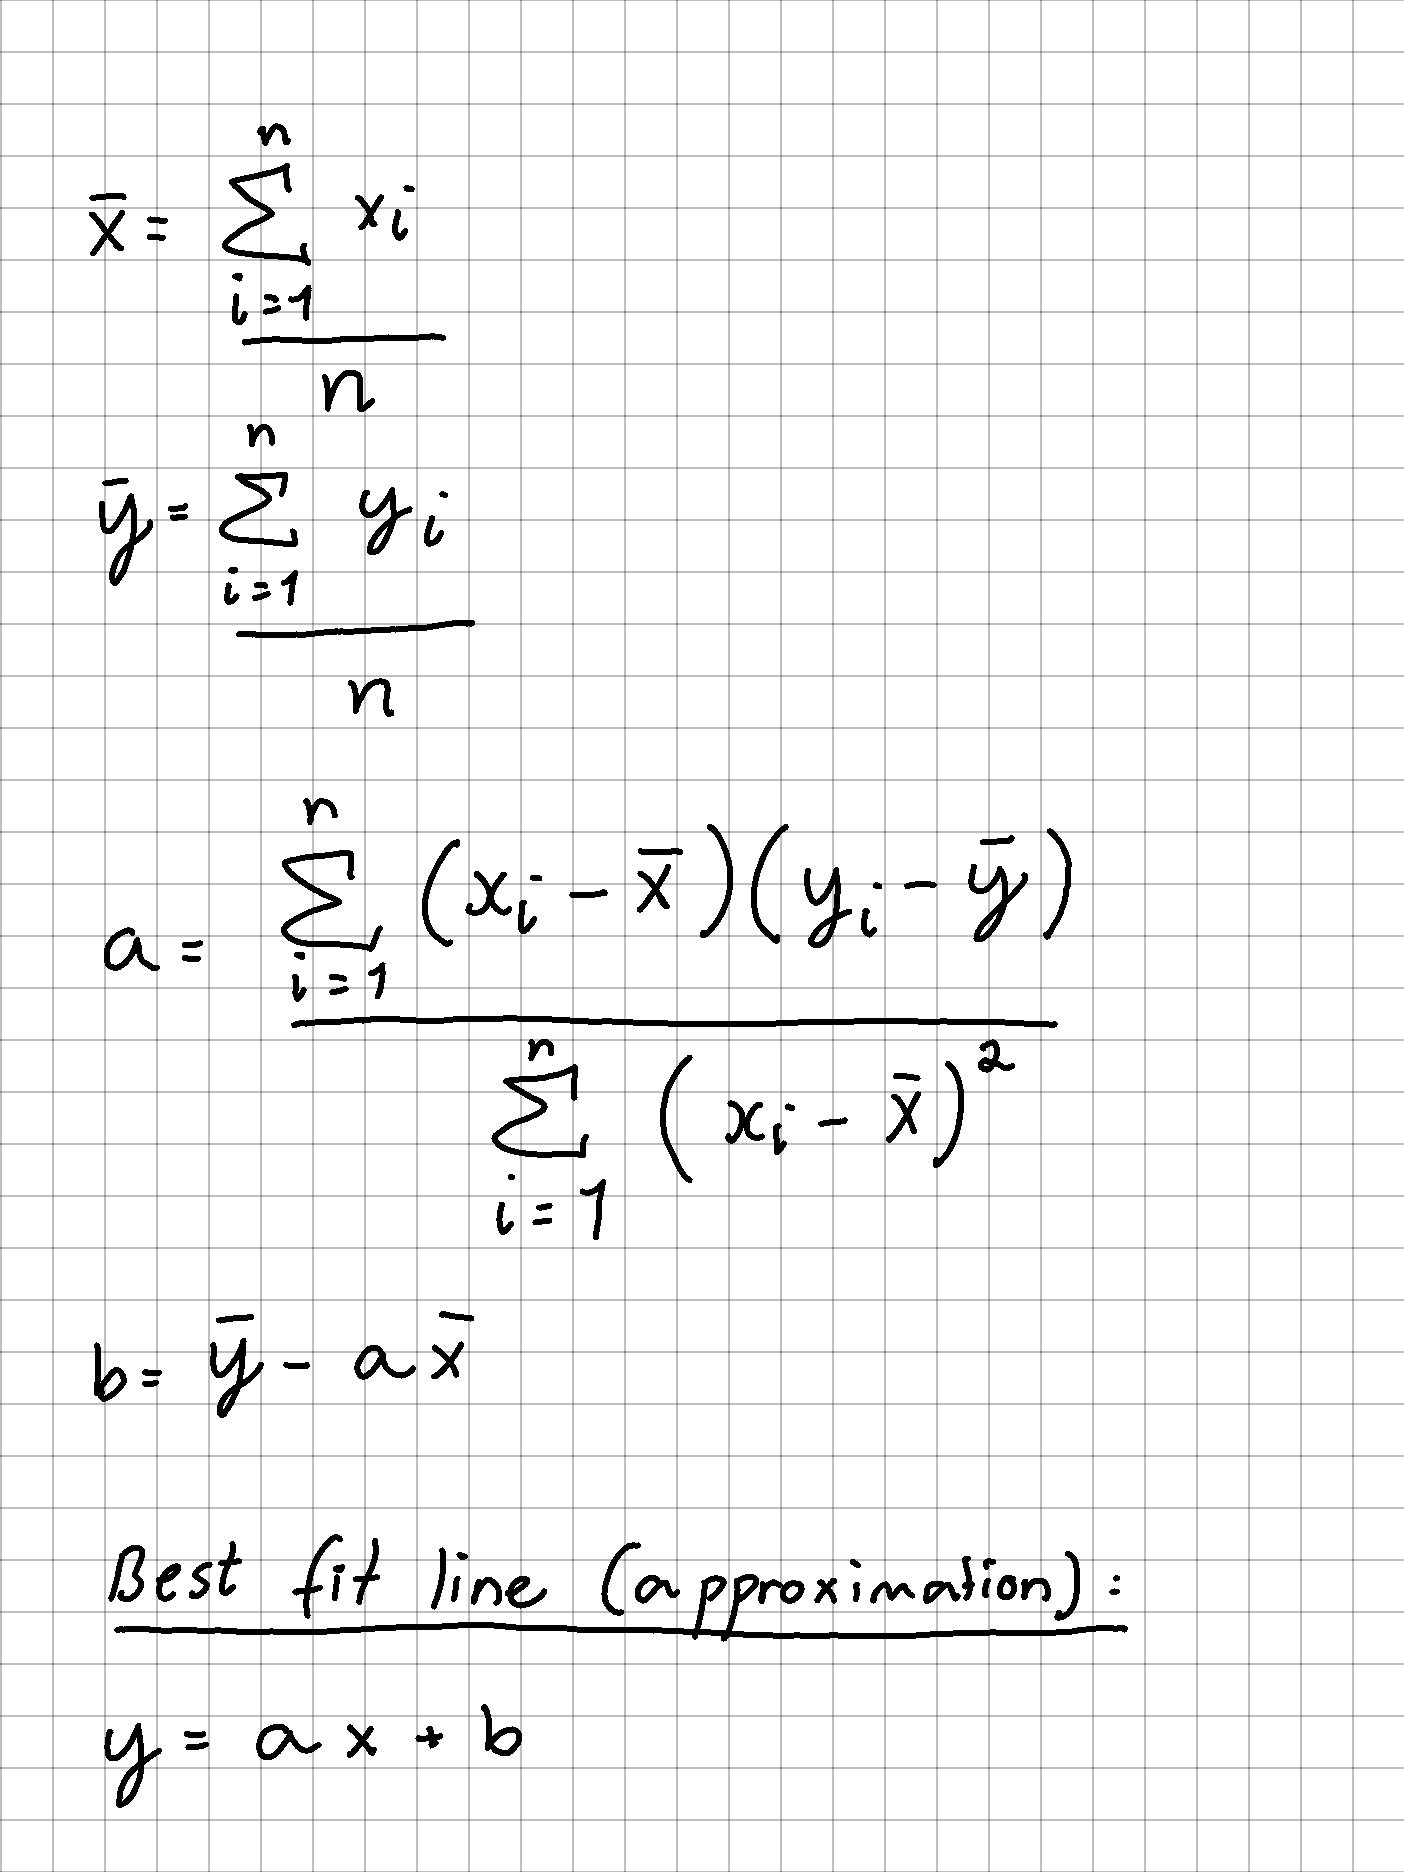 x̄ = ∑_{i=1}^{n} x_i / n
ȳ = ∑_{i=1}^{n} y_i / n
a = ∑_{i=1}^{n} (x_i - x̄)(y_i - ȳ) / ∑_{i=1}^{n} (x_i - x̄)^2
b = ȳ - a x̄
Best fit line (approximation):
y = a x + b